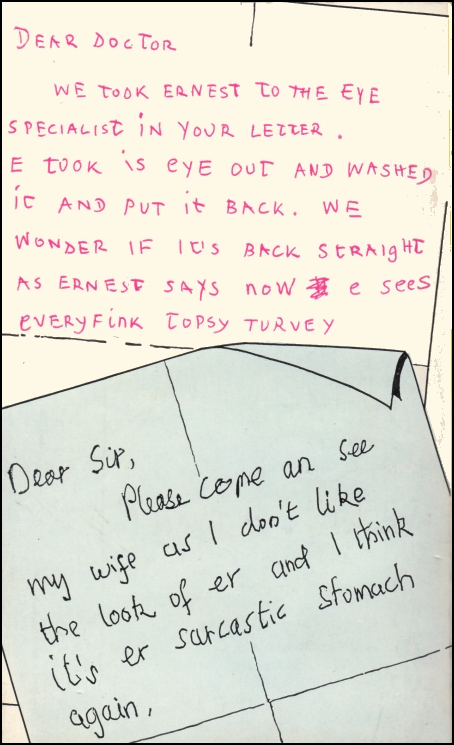 DEAR DOCTOR
WE TOOK ERNEST TO THE EYE
SPECIALIST iN YOUR LETTER .
E TOOK iS eYE OUT AND WASHED
iT AND PUT it BACK. WE
WONDER IF IT'S BACK STRAIgHT
AS ERNEST SAYS noW e seeS
eVERYFiNK TOPSY TURVEY
Dear Sir,
Please come an see
my wife as I don't like
the look of er and I think
it's er sarcastic stomach
again.